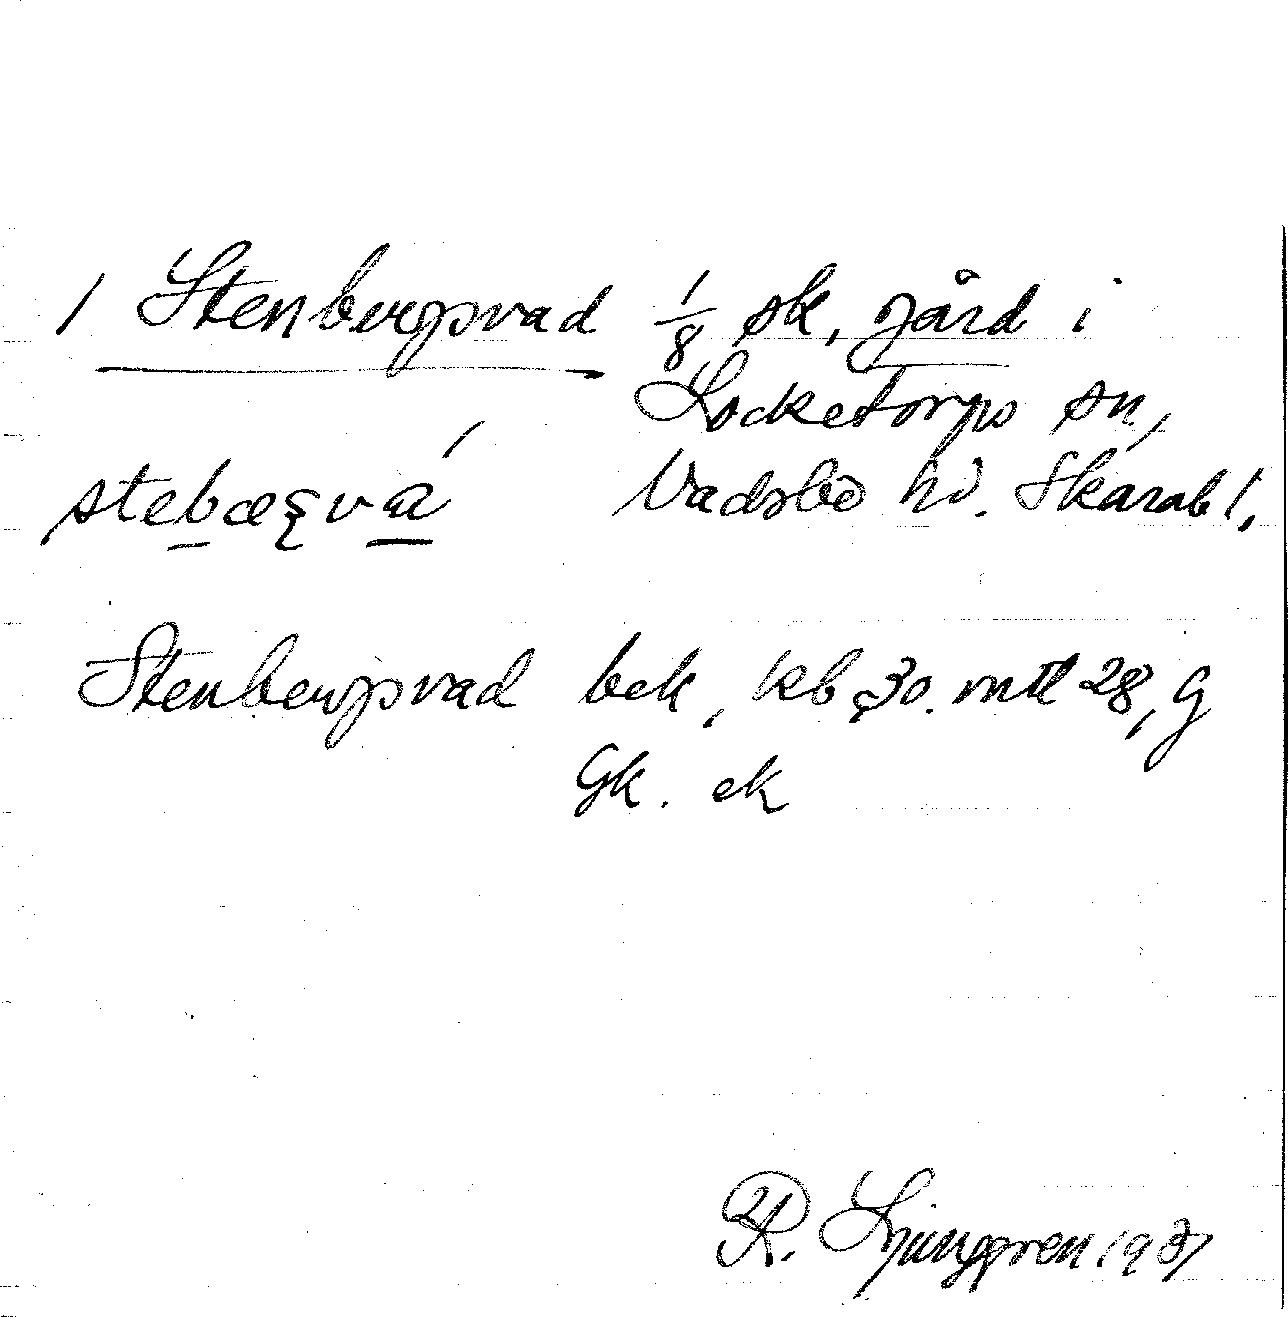 1 Stenbergsvad 1/8 sk. gård i
Locketorps sn,
Vadsbo hd. Skarab l.
Stenbergsvad bek, kb 30. mtl 28, G
Gk. ek
R. Ljunggren 1931